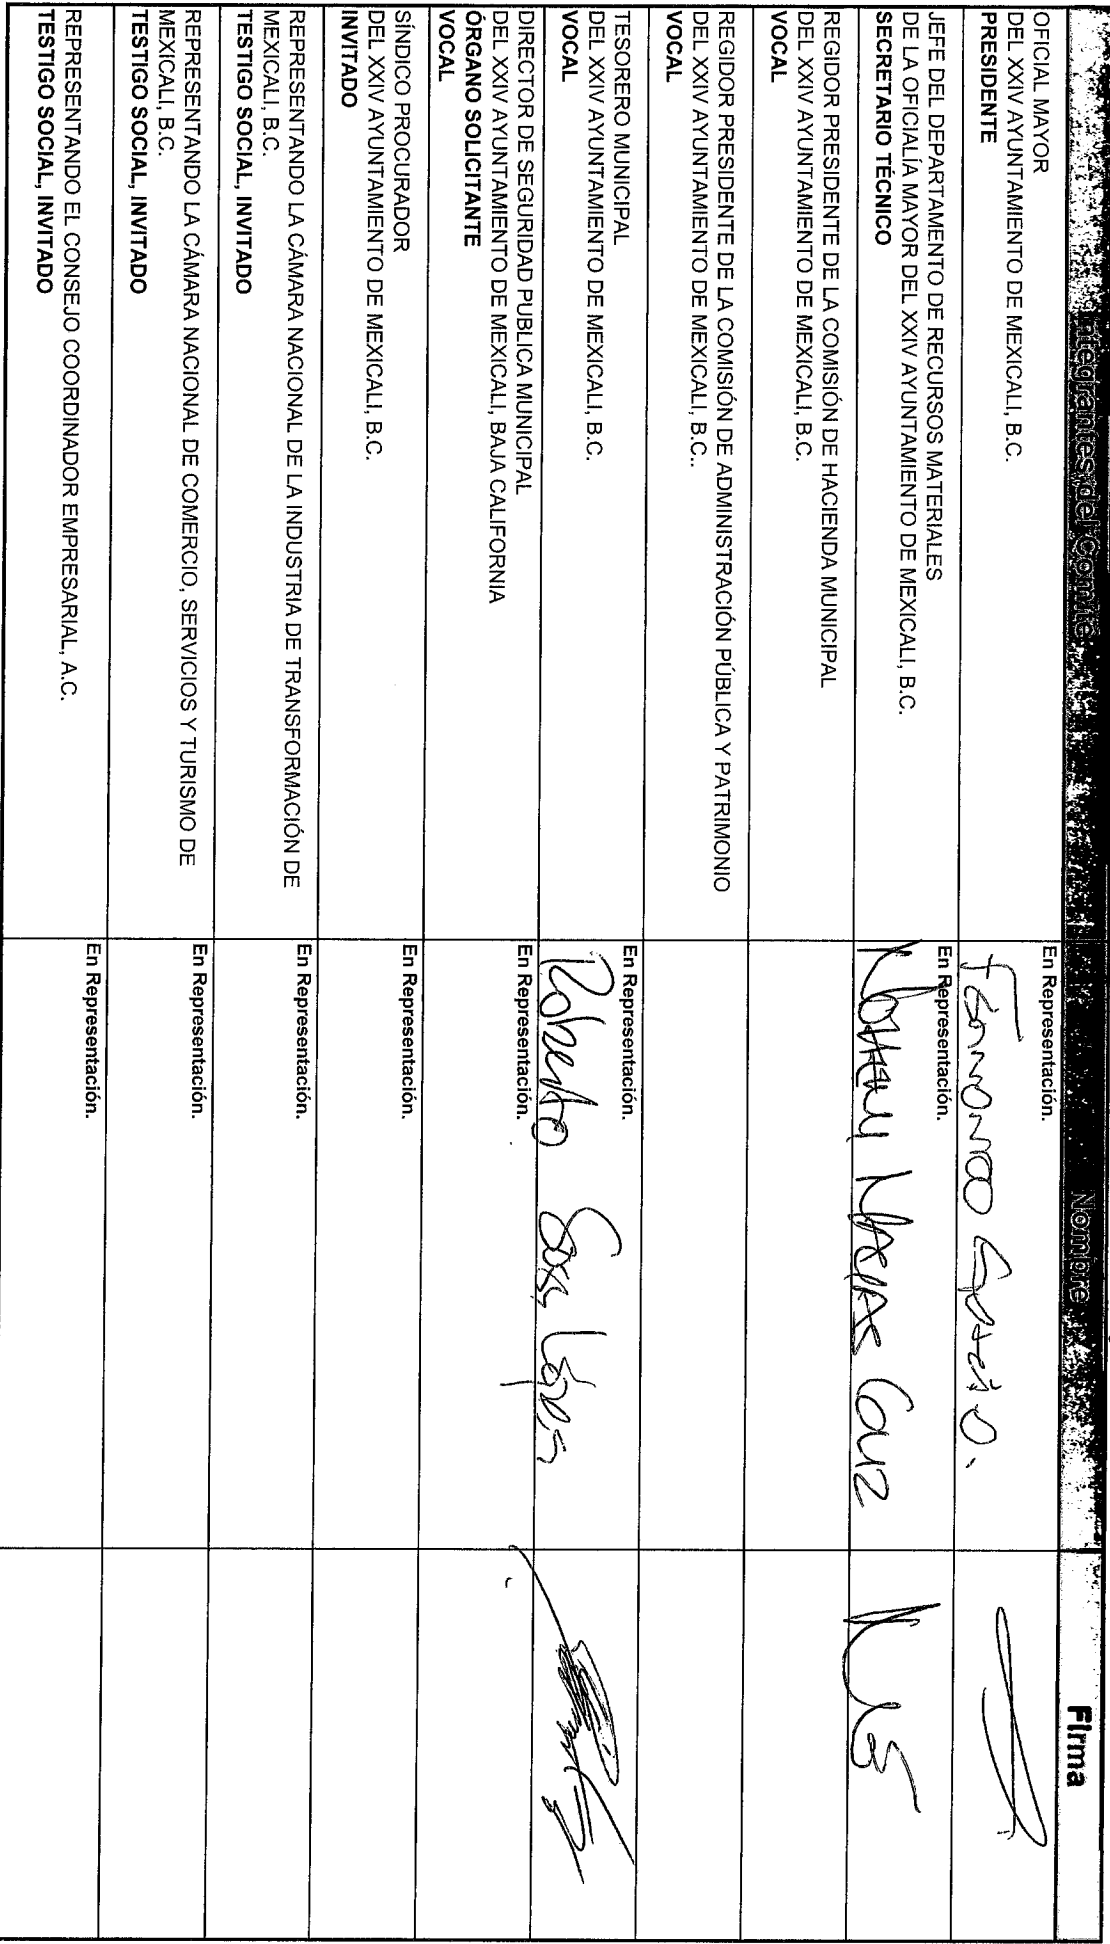 Integrantes del Comité
Nombre
Firma
OFICIAL MAYOR
DEL XXIV AYUNTAMIENTO DE MEXICALI, B.C.
PRESIDENTE
En Representación.
JEFE DEL DEPARTAMENTO DE RECURSOS MATERIALES
DE LA OFICIALÍA MAYOR DEL XXIV AYUNTAMIENTO DE MEXICALI, B.C.
SECRETARIO TÉCNICO
En Representación.
REGIDOR PRESIDENTE DE LA COMISIÓN DE HACIENDA MUNICIPAL
DEL XXIV AYUNTAMIENTO DE MEXICALI, B.C.
VOCAL
REGIDOR PRESIDENTE DE LA COMISIÓN DE ADMINISTRACIÓN PÚBLICA Y PATRIMONIO
DEL XXIV AYUNTAMIENTO DE MEXICALI, B.C..
VOCAL
TESORERO MUNICIPAL
DEL XXIV AYUNTAMIENTO DE MEXICALI, B.C.
VOCAL
En Representación.
Roberto Sosa López
DIRECTOR DE SEGURIDAD PUBLICA MUNICIPAL
DEL XXIV AYUNTAMIENTO DE MEXICALI, BAJA CALIFORNIA
ÓRGANO SOLICITANTE
VOCAL
En Representación.
SÍNDICO PROCURADOR
DEL XXIV AYUNTAMIENTO DE MEXICALI, B.C.
INVITADO
En Representación.
REPRESENTANDO LA CÁMARA NACIONAL DE LA INDUSTRIA DE TRANSFORMACIÓN DE
MEXICALI, B.C.
TESTIGO SOCIAL, INVITADO
En Representación.
REPRESENTANDO LA CÁMARA NACIONAL DE COMERCIO, SERVICIOS Y TURISMO DE
MEXICALI, B.C.
TESTIGO SOCIAL, INVITADO
En Representación.
REPRESENTANDO EL CONSEJO COORDINADOR EMPRESARIAL, A.C.
TESTIGO SOCIAL, INVITADO
En Representación.